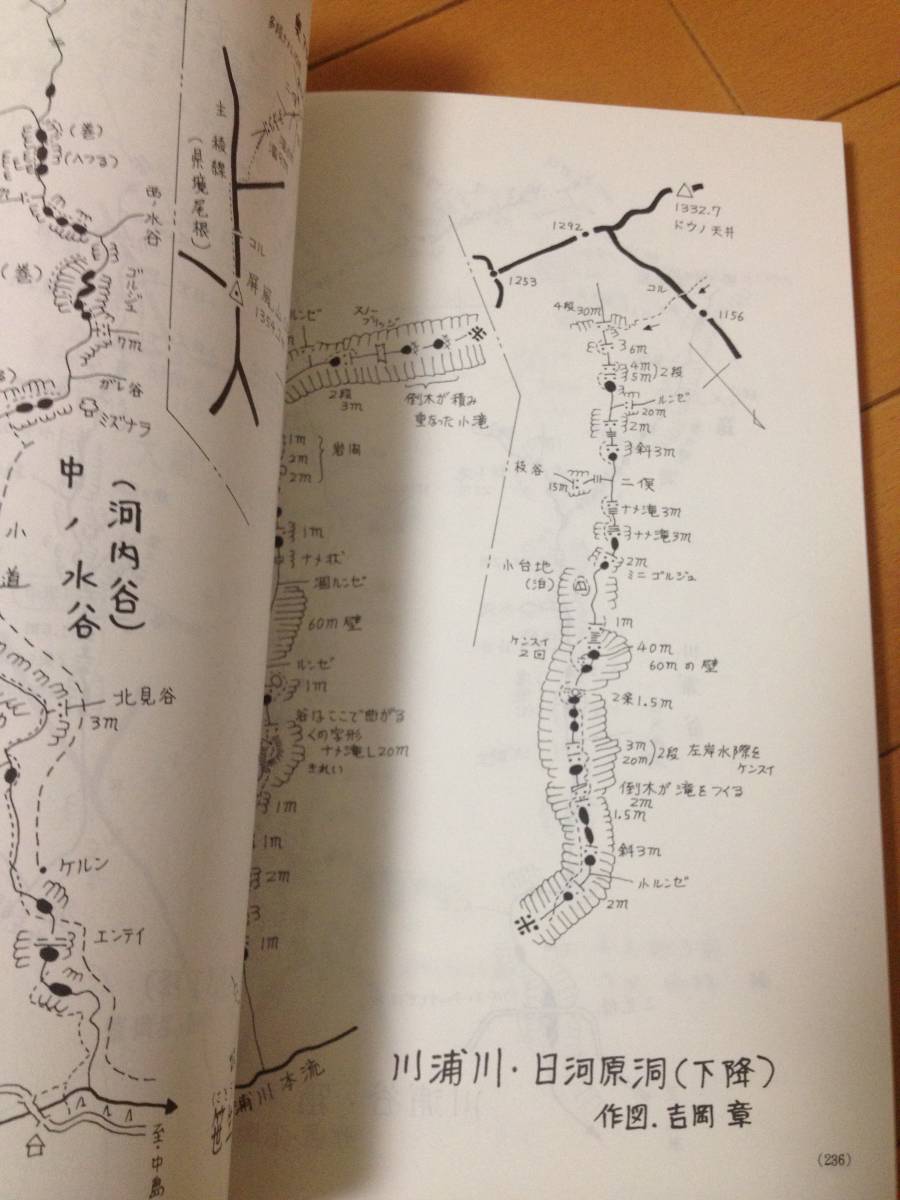 (巻)
(へつる)
西ノ水谷
(巻)
ゴルジュ
7m
ガレ谷
ミズナラ
中ノ水谷
(河内谷)
小
道
北見谷
13m
ケルン
エンテイ
至・中島
主稜線
(県境尾根)
コル
屏風山
1332.7
ドウノ天井
1292
1253
コル
1156
4段30m
6m
4m
5m
2段
3m
ルンゼ
20m
2m
斜3m
枝谷
15m
二俣
ナメ滝3m
ナメ滝3m
2m
ミニゴルジュ
小台地
(泊)
1m
ケンスイ
2回
40m
60mの壁
2条1.5m
3m
20m
2段
左岸水際を
ケンスイ
倒木が滝をつくる
2m
1.5m
斜3m
小ルンゼ
2m
ルンゼ
スノー
ブリッジ
2段
3m
倒木が積み
重なった小滝
1m
2m
2m
岩間
1m
ナメ状
涸ルンゼ
60m壁
ルンゼ
1m
谷はここで曲がる
くの字形
ナメ滝L20m
きれい
1m
1m
2m
3
1m
浦川本流
川浦川・日河原洞(下降)
作図.吉岡 章
(236)